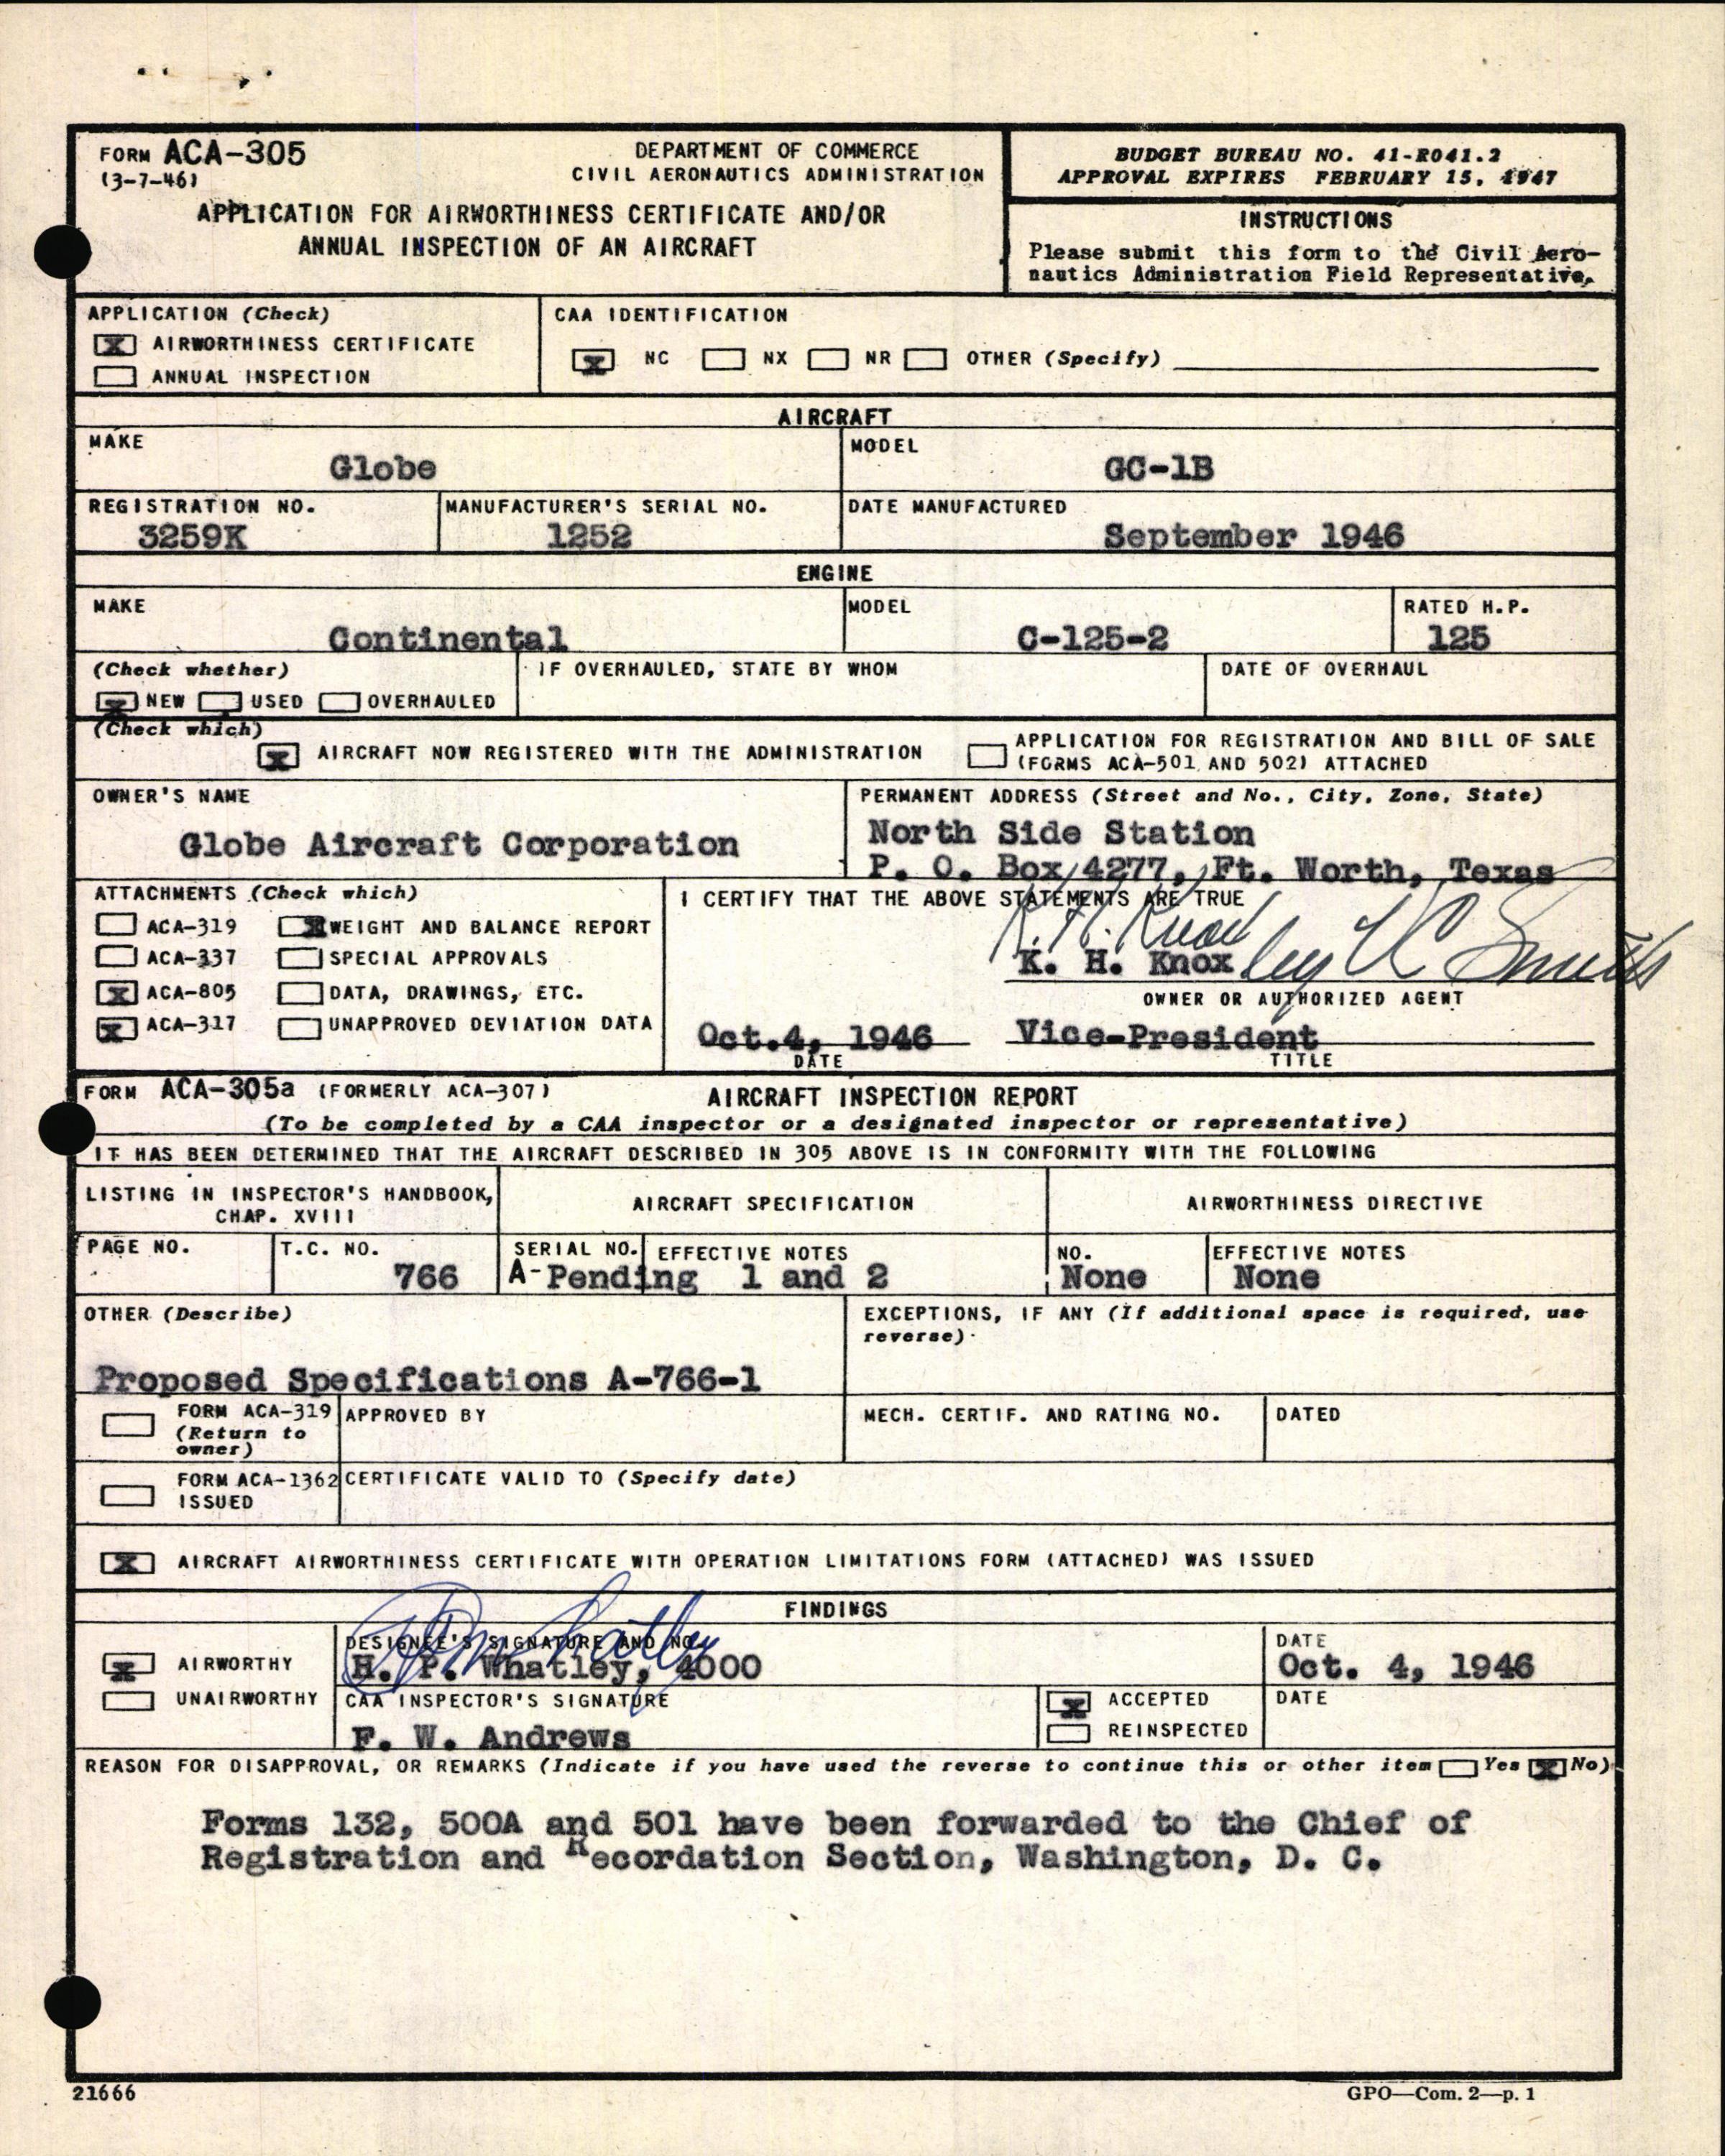 FORM ACA-305
(3-7-46)
DEPARTMENT OF COMMERCE
CIVIL AERONAUTICS ADMINISTRATION
APPLICATION FOR AIRWORTHINESS CERTIFICATE AND/OR
ANNUAL INSPECTION OF AN AIRCRAFT
BUDGET BUREAU NO. 41-R041.2
APPROVAL EXPIRES FEBRUARY 15, 1947
INSTRUCTIONS
Please submit this form to the Civil Aero-
nautics Administration Field Representative.
APPLICATION (Check)
X AIRWORTHINESS CERTIFICATE
ANNUAL INSPECTION
CAA IDENTIFICATION
X NC NX NR OTHER (Specify)
AIRCRAFT
MAKE
Globe
MODEL
GC-1B
REGISTRATION NO.
3259K
MANUFACTURER'S SERIAL NO.
1252
DATE MANUFACTURED
September 1946
ENGINE
MAKE
Continental
MODEL
C-125-2
RATED H.P.
125
(Check whether)
X NEW USED OVERHAULED
IF OVERHAULED, STATE BY WHOM
DATE OF OVERHAUL
(Check which)
X AIRCRAFT NOW REGISTERED WITH THE ADMINISTRATION
APPLICATION FOR REGISTRATION AND BILL OF SALE
(FORMS ACA-501 AND 502) ATTACHED
OWNER'S NAME
Globe Aircraft Corporation
PERMANENT ADDRESS (Street and No., City, Zone, State)
North Side Station
P. O. Box 4277, Ft. Worth, Texas
ATTACHMENTS (Check which)
ACA-319 X WEIGHT AND BALANCE REPORT
ACA-337 SPECIAL APPROVALS
X ACA-805 DATA, DRAWINGS, ETC.
X ACA-317 UNAPPROVED DEVIATION DATA
I CERTIFY THAT THE ABOVE STATEMENTS ARE TRUE
K. H. Knox
K. H. Knox by V C Smith
OWNER OR AUTHORIZED AGENT
Oct.4, 1946 Vice-President
DATE TITLE
FORM ACA-305a (FORMERLY ACA-307) AIRCRAFT INSPECTION REPORT
(To be completed by a CAA inspector or a designated inspector or representative)
IT HAS BEEN DETERMINED THAT THE AIRCRAFT DESCRIBED IN 305 ABOVE IS IN CONFORMITY WITH THE FOLLOWING
LISTING IN INSPECTOR'S HANDBOOK,
CHAP. XVIII
AIRCRAFT SPECIFICATION
AIRWORTHINESS DIRECTIVE
PAGE NO.
T.C. NO.
766
SERIAL NO. EFFECTIVE NOTES
A- Pending 1 and 2
NO.
None
EFFECTIVE NOTES
None
OTHER (Describe)
Proposed Specifications A-766-1
EXCEPTIONS, IF ANY (If additional space is required, use
reverse)
FORM ACA-319
(Return to
owner)
APPROVED BY
MECH. CERTIF. AND RATING NO.
DATED
FORM ACA-1362
ISSUED
CERTIFICATE VALID TO (Specify date)
X AIRCRAFT AIRWORTHINESS CERTIFICATE WITH OPERATION LIMITATIONS FORM (ATTACHED) WAS ISSUED
FINDINGS
X AIRWORTHY
UNAIRWORTHY
DESIGNEE'S SIGNATURE AND NO.
H. P. Whatley, 4000
DATE
Oct. 4, 1946
CAA INSPECTOR'S SIGNATURE
F. W. Andrews
X ACCEPTED
REINSPECTED
DATE
REASON FOR DISAPPROVAL, OR REMARKS (Indicate if you have used the reverse to continue this or other item Yes X No)
Forms 132, 500A and 501 have been forwarded to the Chief of
Registration and Recordation Section, Washington, D. C.
21666
GPO—Com. 2—p. 1